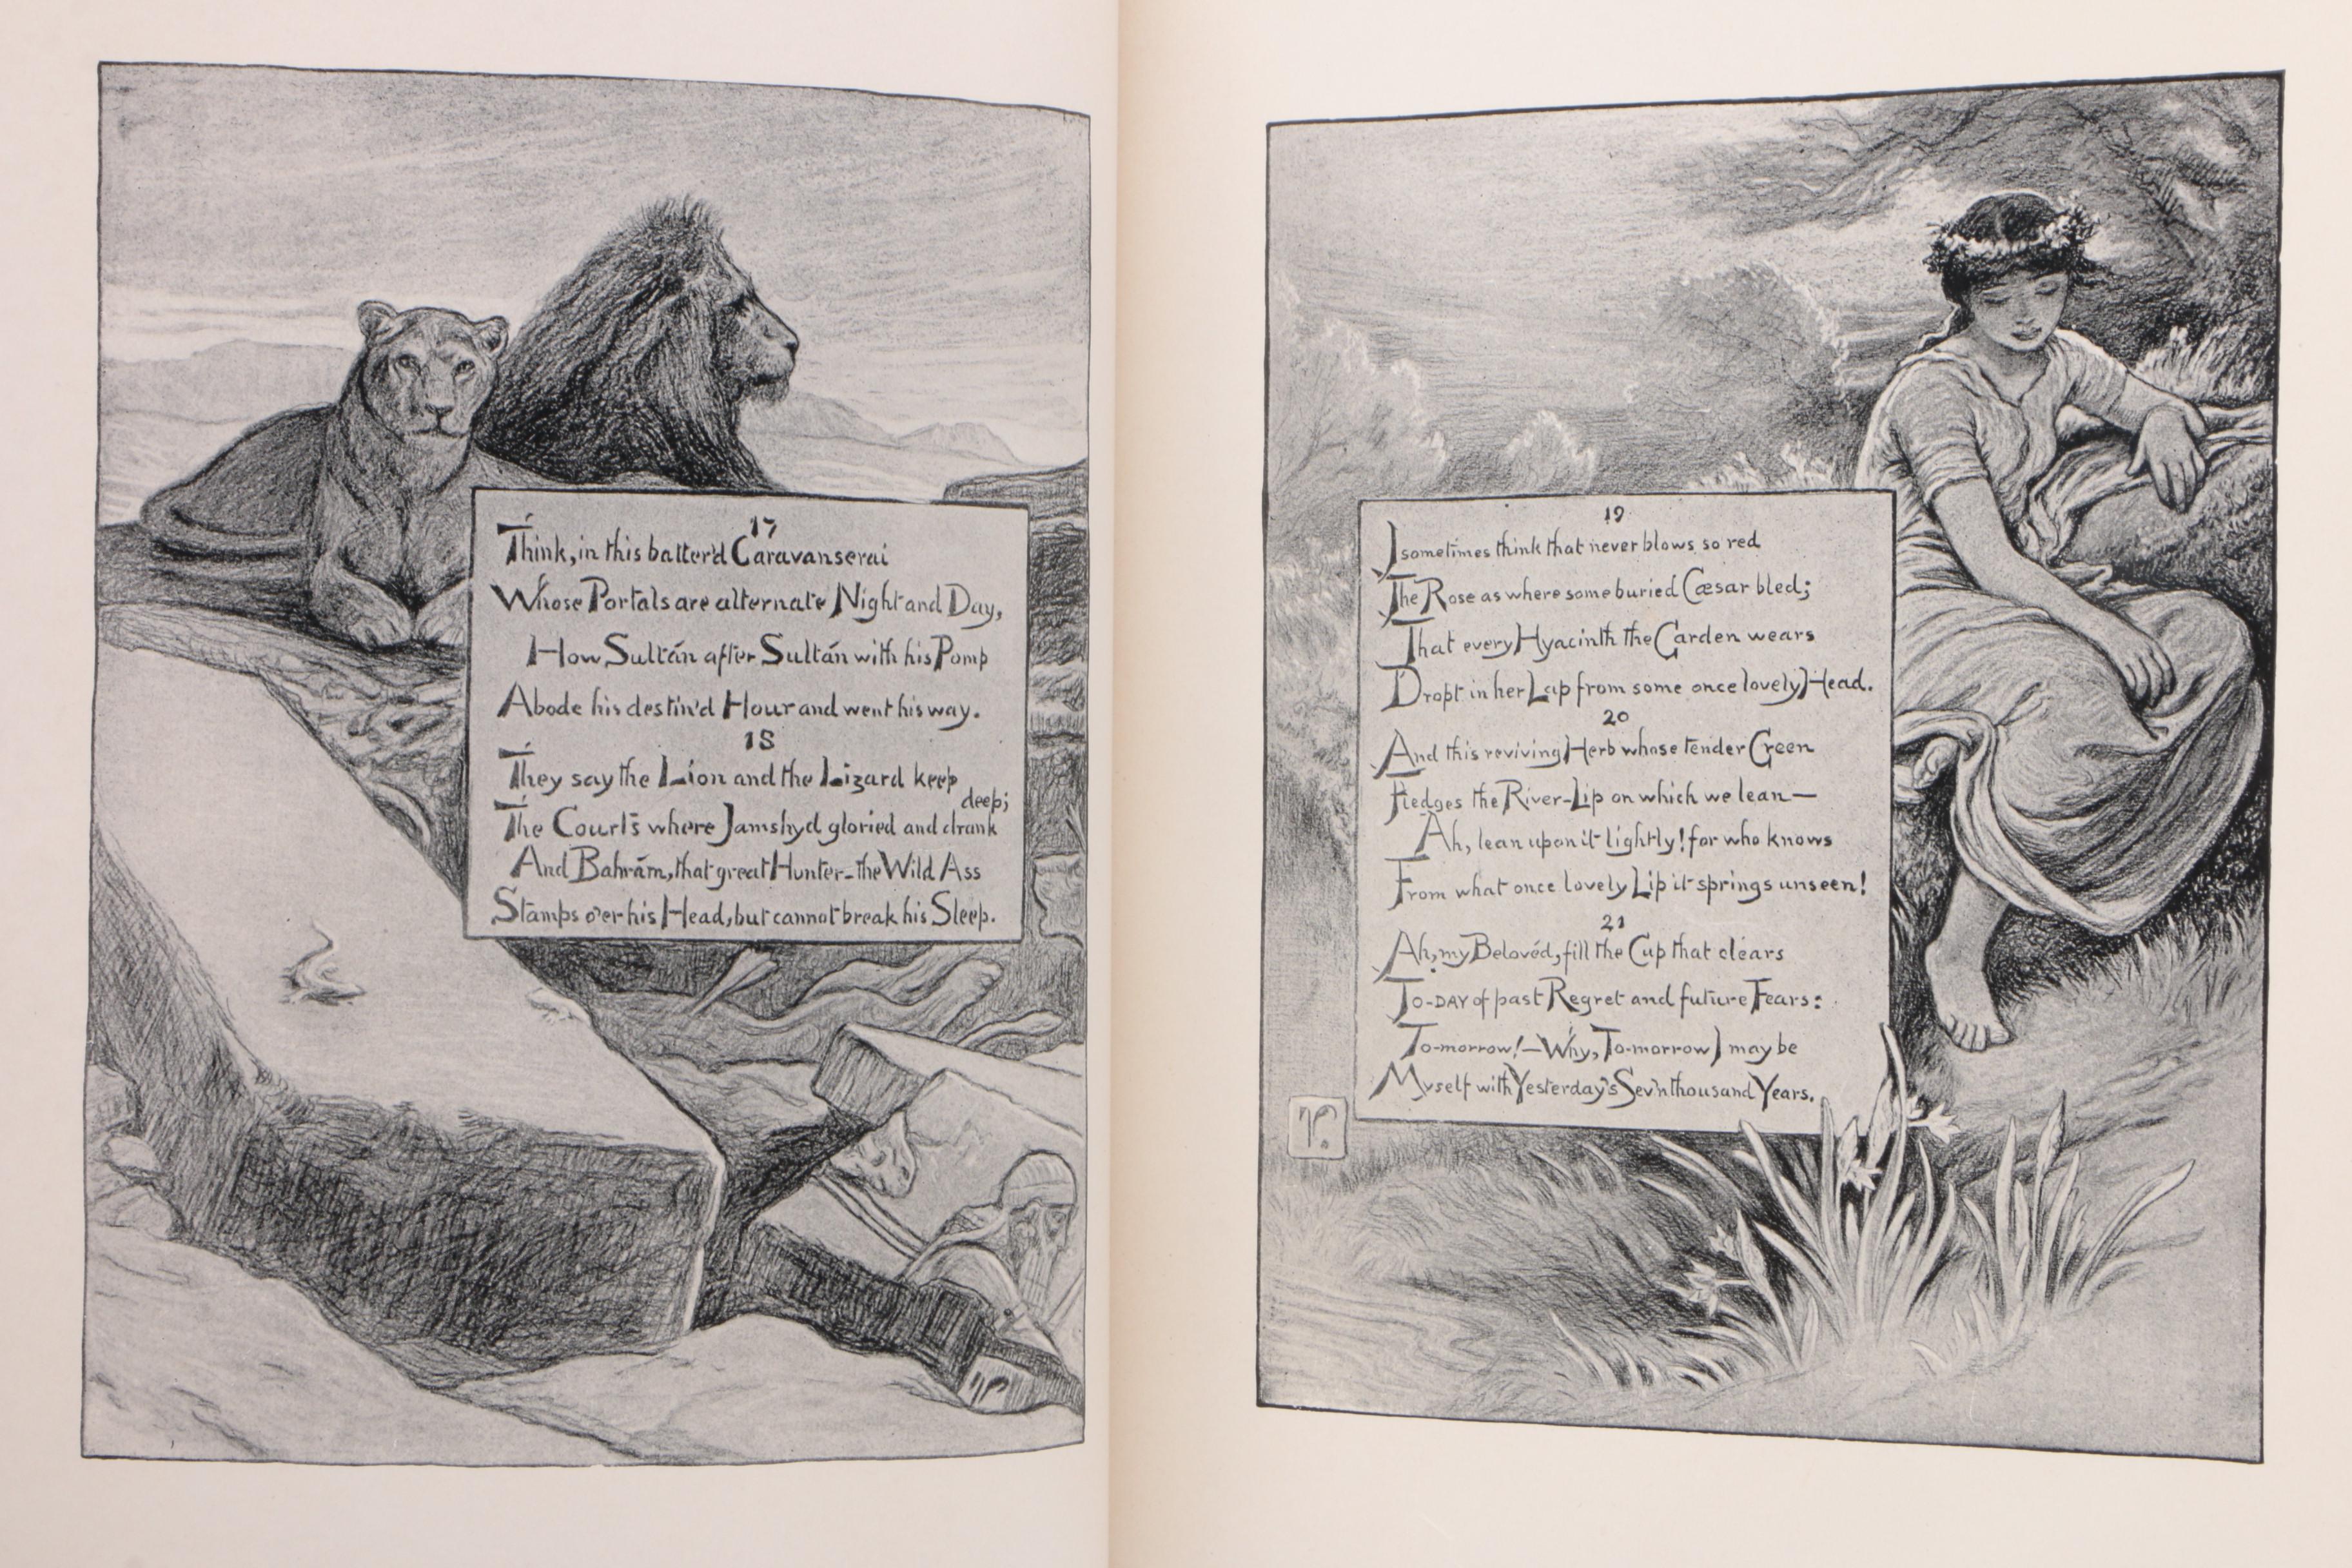 17
Think, in this batter'd Caravanserai
Whose Portals are alternate Night and Day,
How Sultán after Sultán with his Pomp
Abode his destin'd Hour and went his way.
18
They say the Lion and the Lizard keep
The Courts where Jamshyd gloried and drank deep;
And Bahrám, that great Hunter-the Wild Ass
Stamps o'er his Head, but cannot break his Sleep.
19
I sometimes think that never blows so red
The Rose as where some buried Cæsar bled;
That every Hyacinth the Garden wears
Dropt in her Lap from some once lovely Head.
20
And this reviving Herb whose tender Green
Fledges the River-Lip on which we lean—
Ah, lean upon it lightly! for who knows
From what once lovely Lip it springs unseen!
21
Ah, my Belovéd, fill the Cup that clears
To-DAY of past Regret and future Fears:
To-morrow!—Why, To-morrow I may be
Myself with Yesterday's Sev'n thousand Years.